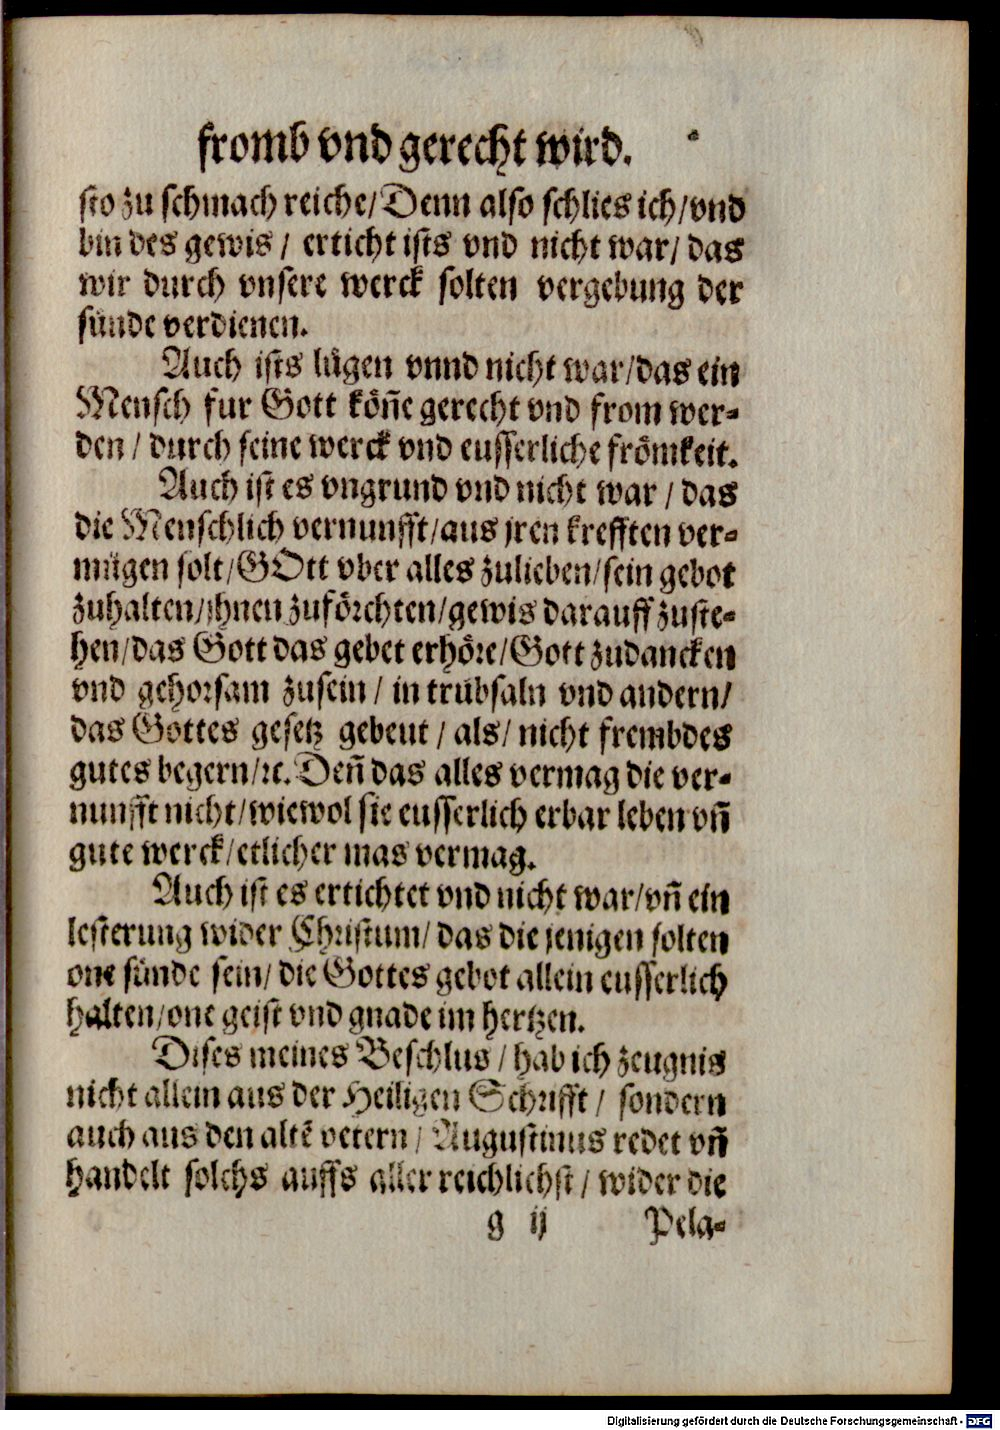 fromb vnd gerecht wird.
sto zu schmach reiche/Denn also schlies ich/vnd
bin des gewis / erticht ists vnd nicht war/ das
wir durch vnsere werck solten vergebung der
sünde verdienen.
Auch ists lügen vnnd nicht war/das ein
Mensch fur Gott köñe gerecht vnd from wer⸗
den / durch seine werck vnd eusserliche frömkeit.
Auch ist es vngrund vnd nicht war / das
die Menschlich vernunfft/aus jren krefften ver⸗
mügen solt/GOtt vber alles zulieben/sein gebot
zuhalten/ihnen zuförchten/gewis darauff zuste⸗
hen/das Gott das gebet erhöre/Gott zudancken
vnd gehorsam zusein / in trübsaln vnd andern/
das Gottes gesetz gebeut / als/ nicht frembdes
gutes begern/ꝛc. Deñ das alles vermag die ver⸗
nunfft nicht/wiewol sie eusserlich erbar leben vñ
gute werck/etlicher mas vermag.
Auch ist es ertichtet vnd nicht war/vñ ein
lesterung wider Christum/ das die jenigen solten
one sünde sein/ die Gottes gebot allein eusserlich
halten/one geist vnd gnade im hertzen.
Dises meines Beschlus / hab ich zeugnis
nicht allein aus der Heiligen Schrifft / sondern
auch aus den altẽ vetern / Augustinus redet vñ
handelt solchs auffs aller reichlichst / wider die
g ij Pela⸗
Digitalisierung gefördert durch die Deutsche Forschungsgemeinschaft - DFG